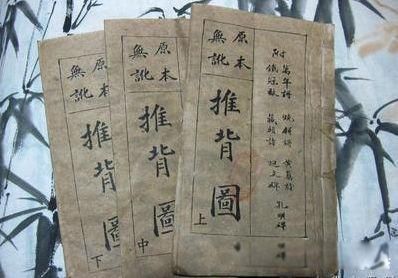 附 萬年 燒餅 黃蘗詩
藏頭詩 孔明碑
原本
無訛
推背圖
上
原本
無訛
推背圖
中
原本
無訛
推背圖
下